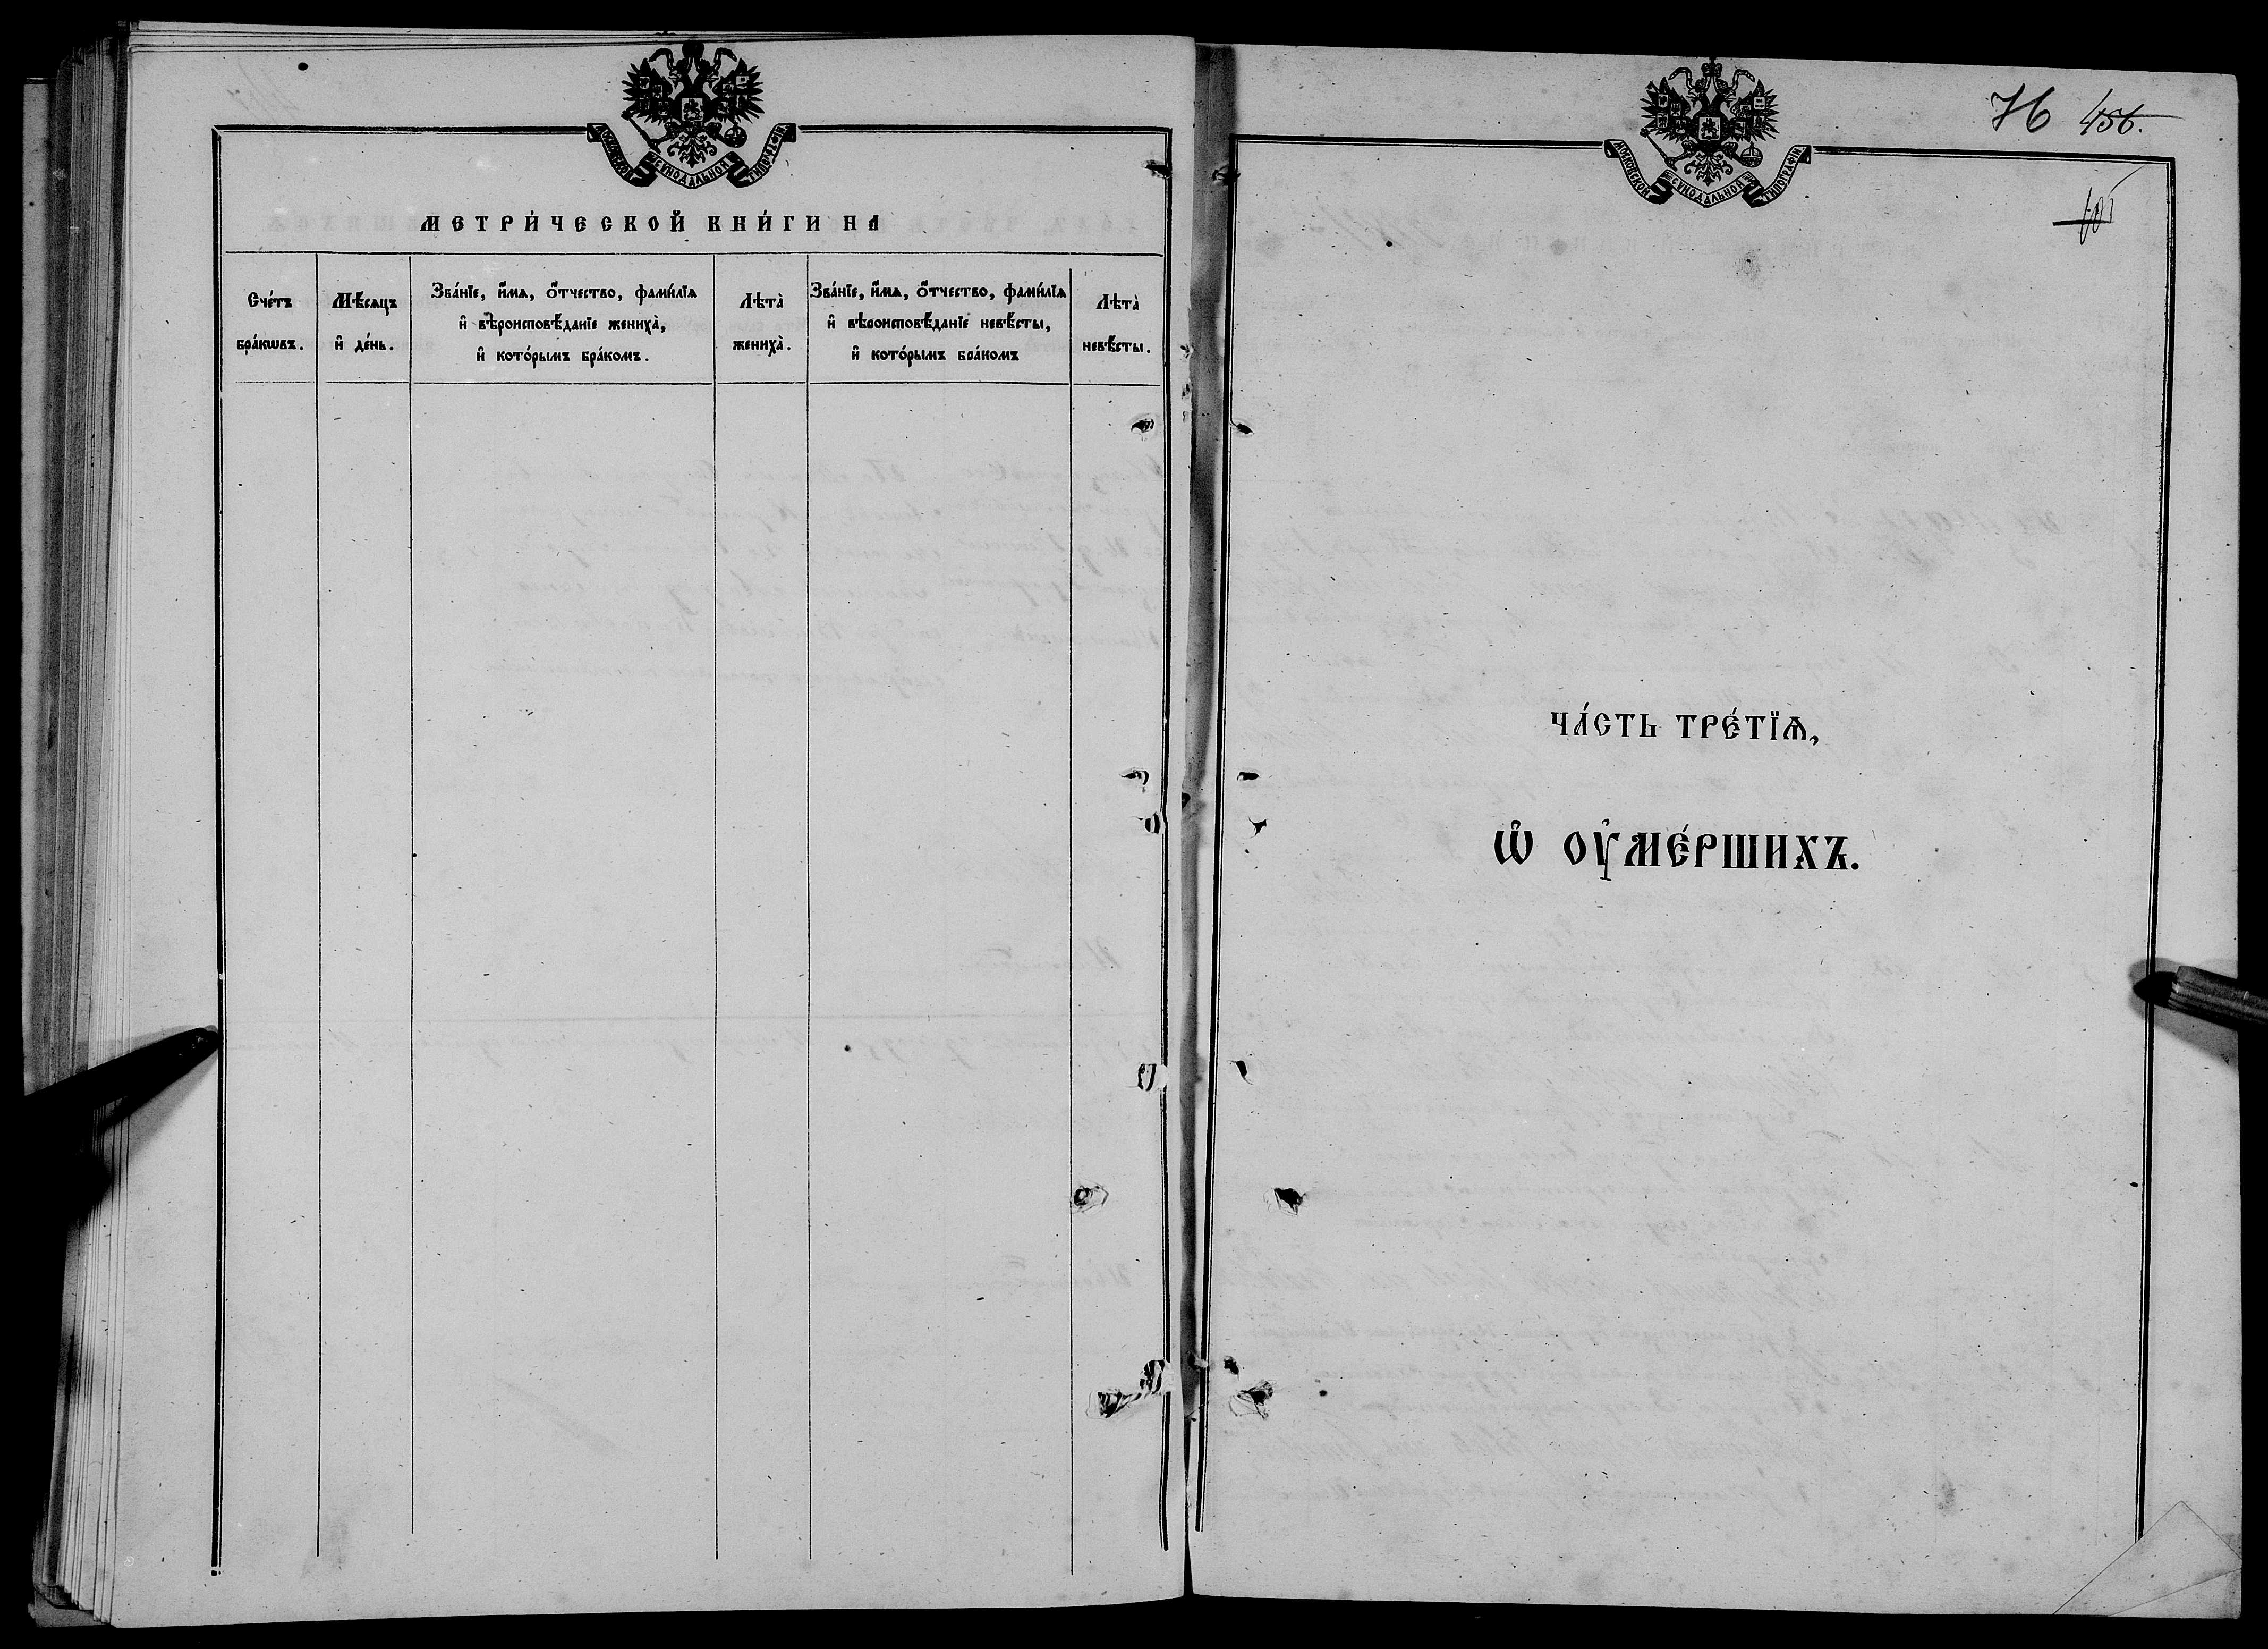 МОСКОВСКОЙ СѴНОДАЛЬНОЙ ТИПОГРАФІИ
МЕТРИ́ЧЕСКОЙ КНИ́ГИ НА
Сче́тъ бра́кѡвъ.
Мѣ́сяцъ и҆ де́нь.
Зва́нїе, и҆́мѧ, ѻ҆́тчество, фами́лїѧ
и҆ вѣроисповѣ́данїе женихà,
и҆ кото́рымъ бра́комъ.
Лѣтà женихà.
Зва́нїе, и҆́мѧ, ѻ҆́тчество, фами́лїѧ
и҆ вѣроисповѣ́данїе невѣ́сты,
и҆ кото́рымъ бра́комъ
Лѣтà невѣ́сты.
76 456.
МОСКОВСКОЙ СѴНОДАЛЬНОЙ ТИПОГРАФІИ
ЧА́СТЬ ТРЕ́ТЇѦ,
Ѡ҆ ОУ҆МЕ́РШИХЪ.